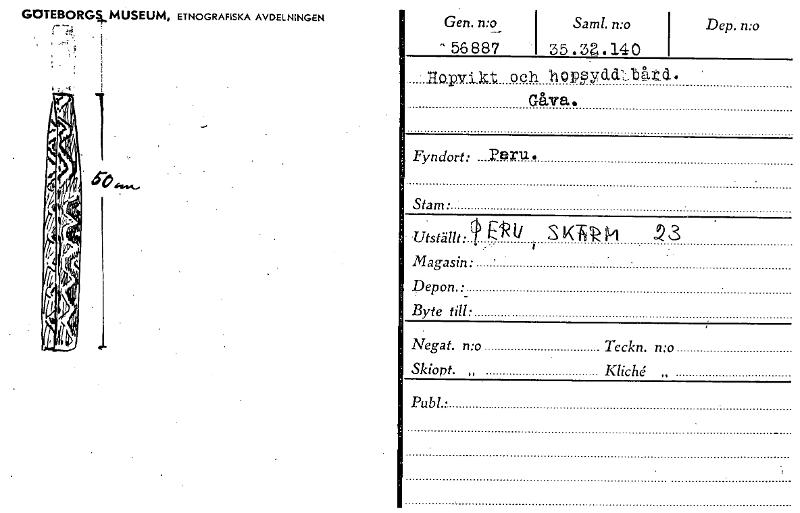 GÖTEBORGS MUSEUM, ETNOGRAFISKA AVDELNINGEN
50 cm
Gen. n:o Saml. n:o Dep. n:o
56887 35.32.140
Hopvikt och hopsydd bård.
Gåva.
Fyndort: Peru.
Stam:
Utställt: PERU, SKÄRM 23
Magasin:
Depon.:
Byte till:
Negat. n:o Teckn. n:o
Skiopt. „ Kliché „
Publ.: